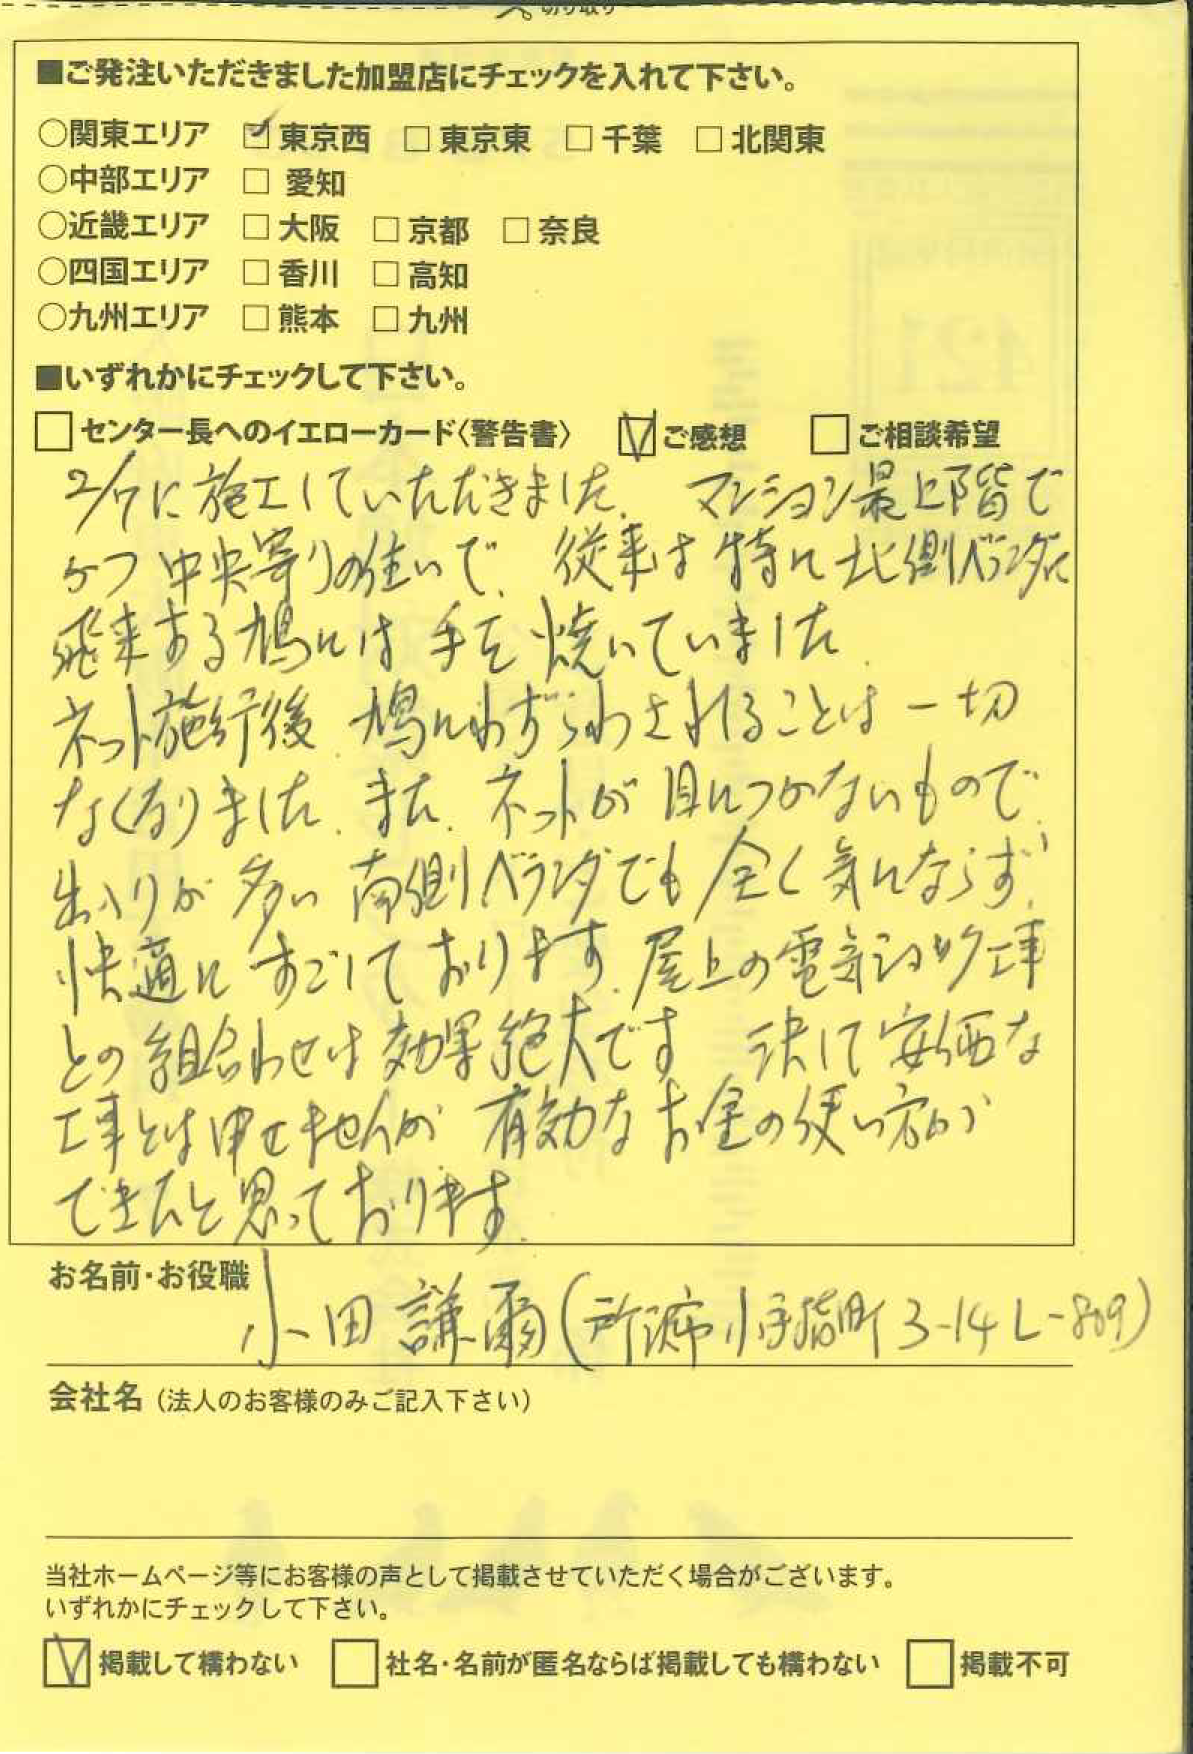 切り取り
■ご発注いただきました加盟店にチェックを入れて下さい。
○関東エリア ☑ 東京西 □ 東京東 □ 千葉 □ 北関東
○中部エリア □ 愛知
○近畿エリア □ 大阪 □ 京都 □ 奈良
○四国エリア □ 香川 □ 高知
○九州エリア □ 熊本 □ 九州
■いずれかにチェックして下さい。
□ センター長へのイエローカード〈警告書〉 ☑ ご感想 □ ご相談希望
2/7に施工していただきました。マンション最上階で
かつ中央寄りの住いで、従来は特に北側ベランダに
飛来する鳩には手を焼いていました。
ネット施行後、鳩にわずらわされることは一切
なくなりました。また、ネットが目につかないもので、
出入りが多い南側ベランダでも全く気にならず、
快適にすごしております。屋上の電気ショック工事
との組合わせは効果絶大です。決して安価な
工事とは申せませんが、有効なお金の使い方が
できたと思っております。
お名前・お役職
小田 謙爾(所沢市小手指町3-14 L-809)
会社名(法人のお客様のみご記入下さい)
当社ホームページ等にお客様の声として掲載させていただく場合がございます。
いずれかにチェックして下さい。
☑ 掲載して構わない □ 社名・名前が匿名ならば掲載しても構わない □ 掲載不可